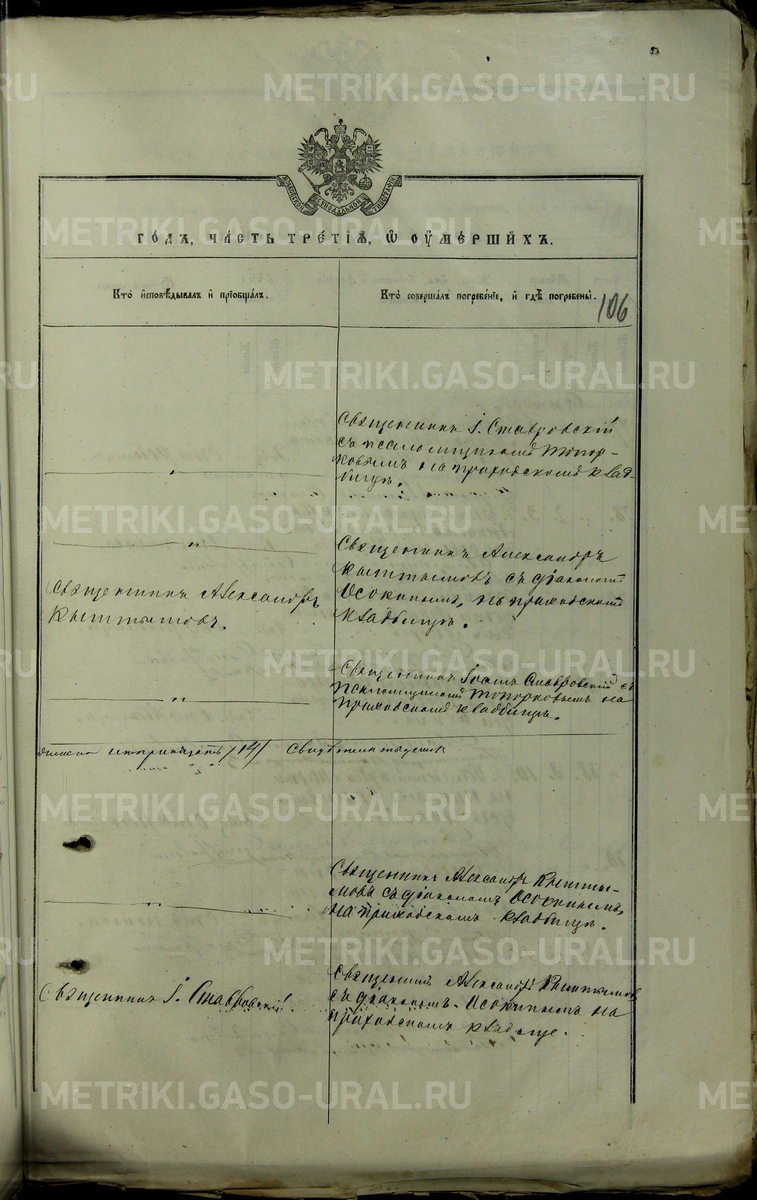 METRIKI.GASO-URAL.RU
го́дъ, ча́сть тре́тїѧ, ѡ оу҆ме́ршихъ.
Кто̀ и҆сповѣ́дывалъ и҆ прїѡбща́лъ.
Кто̀ соверша́лъ погребе́нїе, и҆ гдѣ̀ погребены̀.
106
Священникъ І. Ставровскій
съ псаломщикомъ Топор-
ковымъ на приходскомъ клад-
бищѣ.
Священникъ Александръ
Кыштымовъ съ діакономъ
Осокинымъ, на приходскомъ
кладбищѣ.
Священникъ Александръ
Кыштымовъ.
Священникъ Іоаннъ Ставровскій съ
псаломщикомъ Топорковымъ на
приходскомъ кладбищѣ.
/14/
Священникъ Александръ Кышты-
мовъ съ діакономъ Осокинымъ,
на приходскомъ кладбищѣ.
Священникъ І. Ставровскій.
Священникъ Александръ Кыштымовъ
съ діакономъ Осокинымъ на
приходскомъ кладбище.